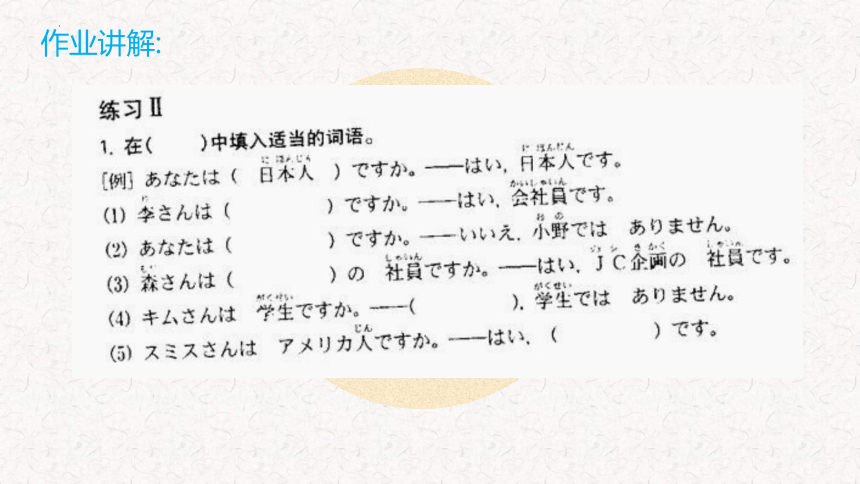 作业讲解:
练习Ⅱ
1. 在(　　)中填入适当的词语。
[例] あなたは（ 日本人 ）ですか。——はい，日本人です。
(1) 李さんは（　　　）ですか。——はい，会社員です。
(2) あなたは（　　　）ですか。——いいえ，小野では ありません。
(3) 森さんは（　　　）の 社員ですか。——はい，ＪＣ企画の 社員です。
(4) キムさんは 学生ですか。——（　　　），学生では ありません。
(5) スミスさんは アメリカ人ですか。——はい，（　　　）です。